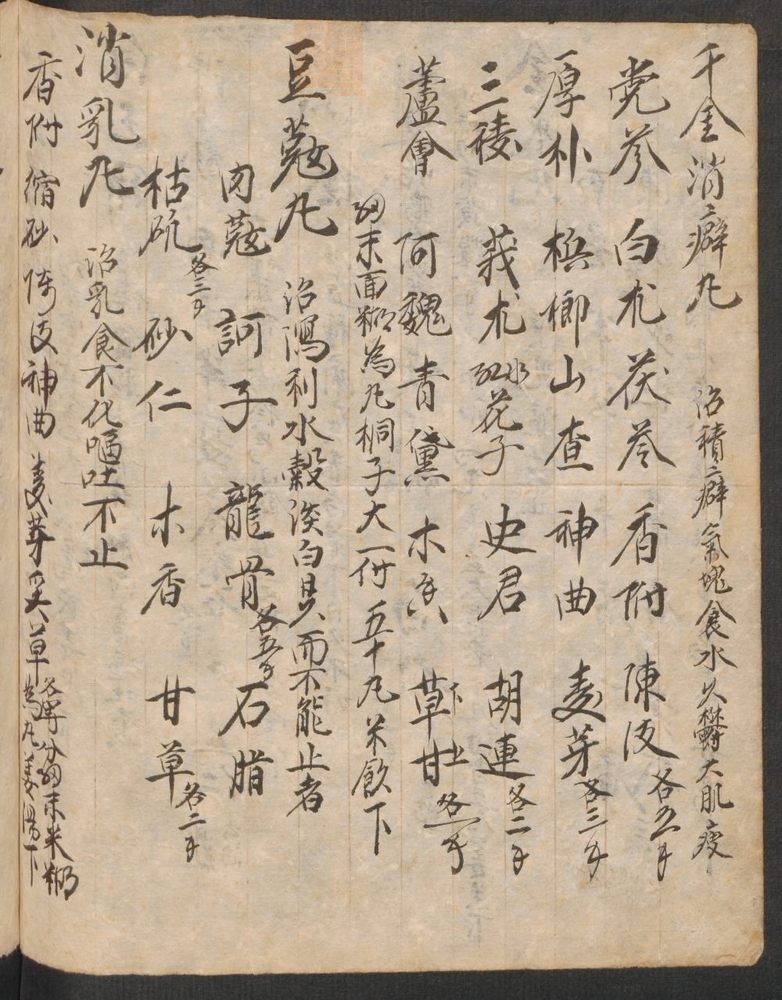 千金消癖丸 治積癖氣塊食水久鬱大肌瘦
党参 白朮 茯苓 香附 陳皮各五
厚朴 檳榔 山查 神曲 麦芽各三
三稜 莪朮 花子 史君 胡連各二
蘆會 阿魏 青黛 木香 草甘各一
細末面糊為丸桐子大一付五十丸米飲下
豆蔻丸 治瀉利水穀淡白而不能止者
肉蔻 訶子 龍骨各五 石脂
枯矾各三 砂仁 木香 甘草各二
消乳丸 治乳食不化嘔吐不止
香附 縮砂 陳皮 神曲 麦芽 炙草各等分細末米糊為丸姜湯下